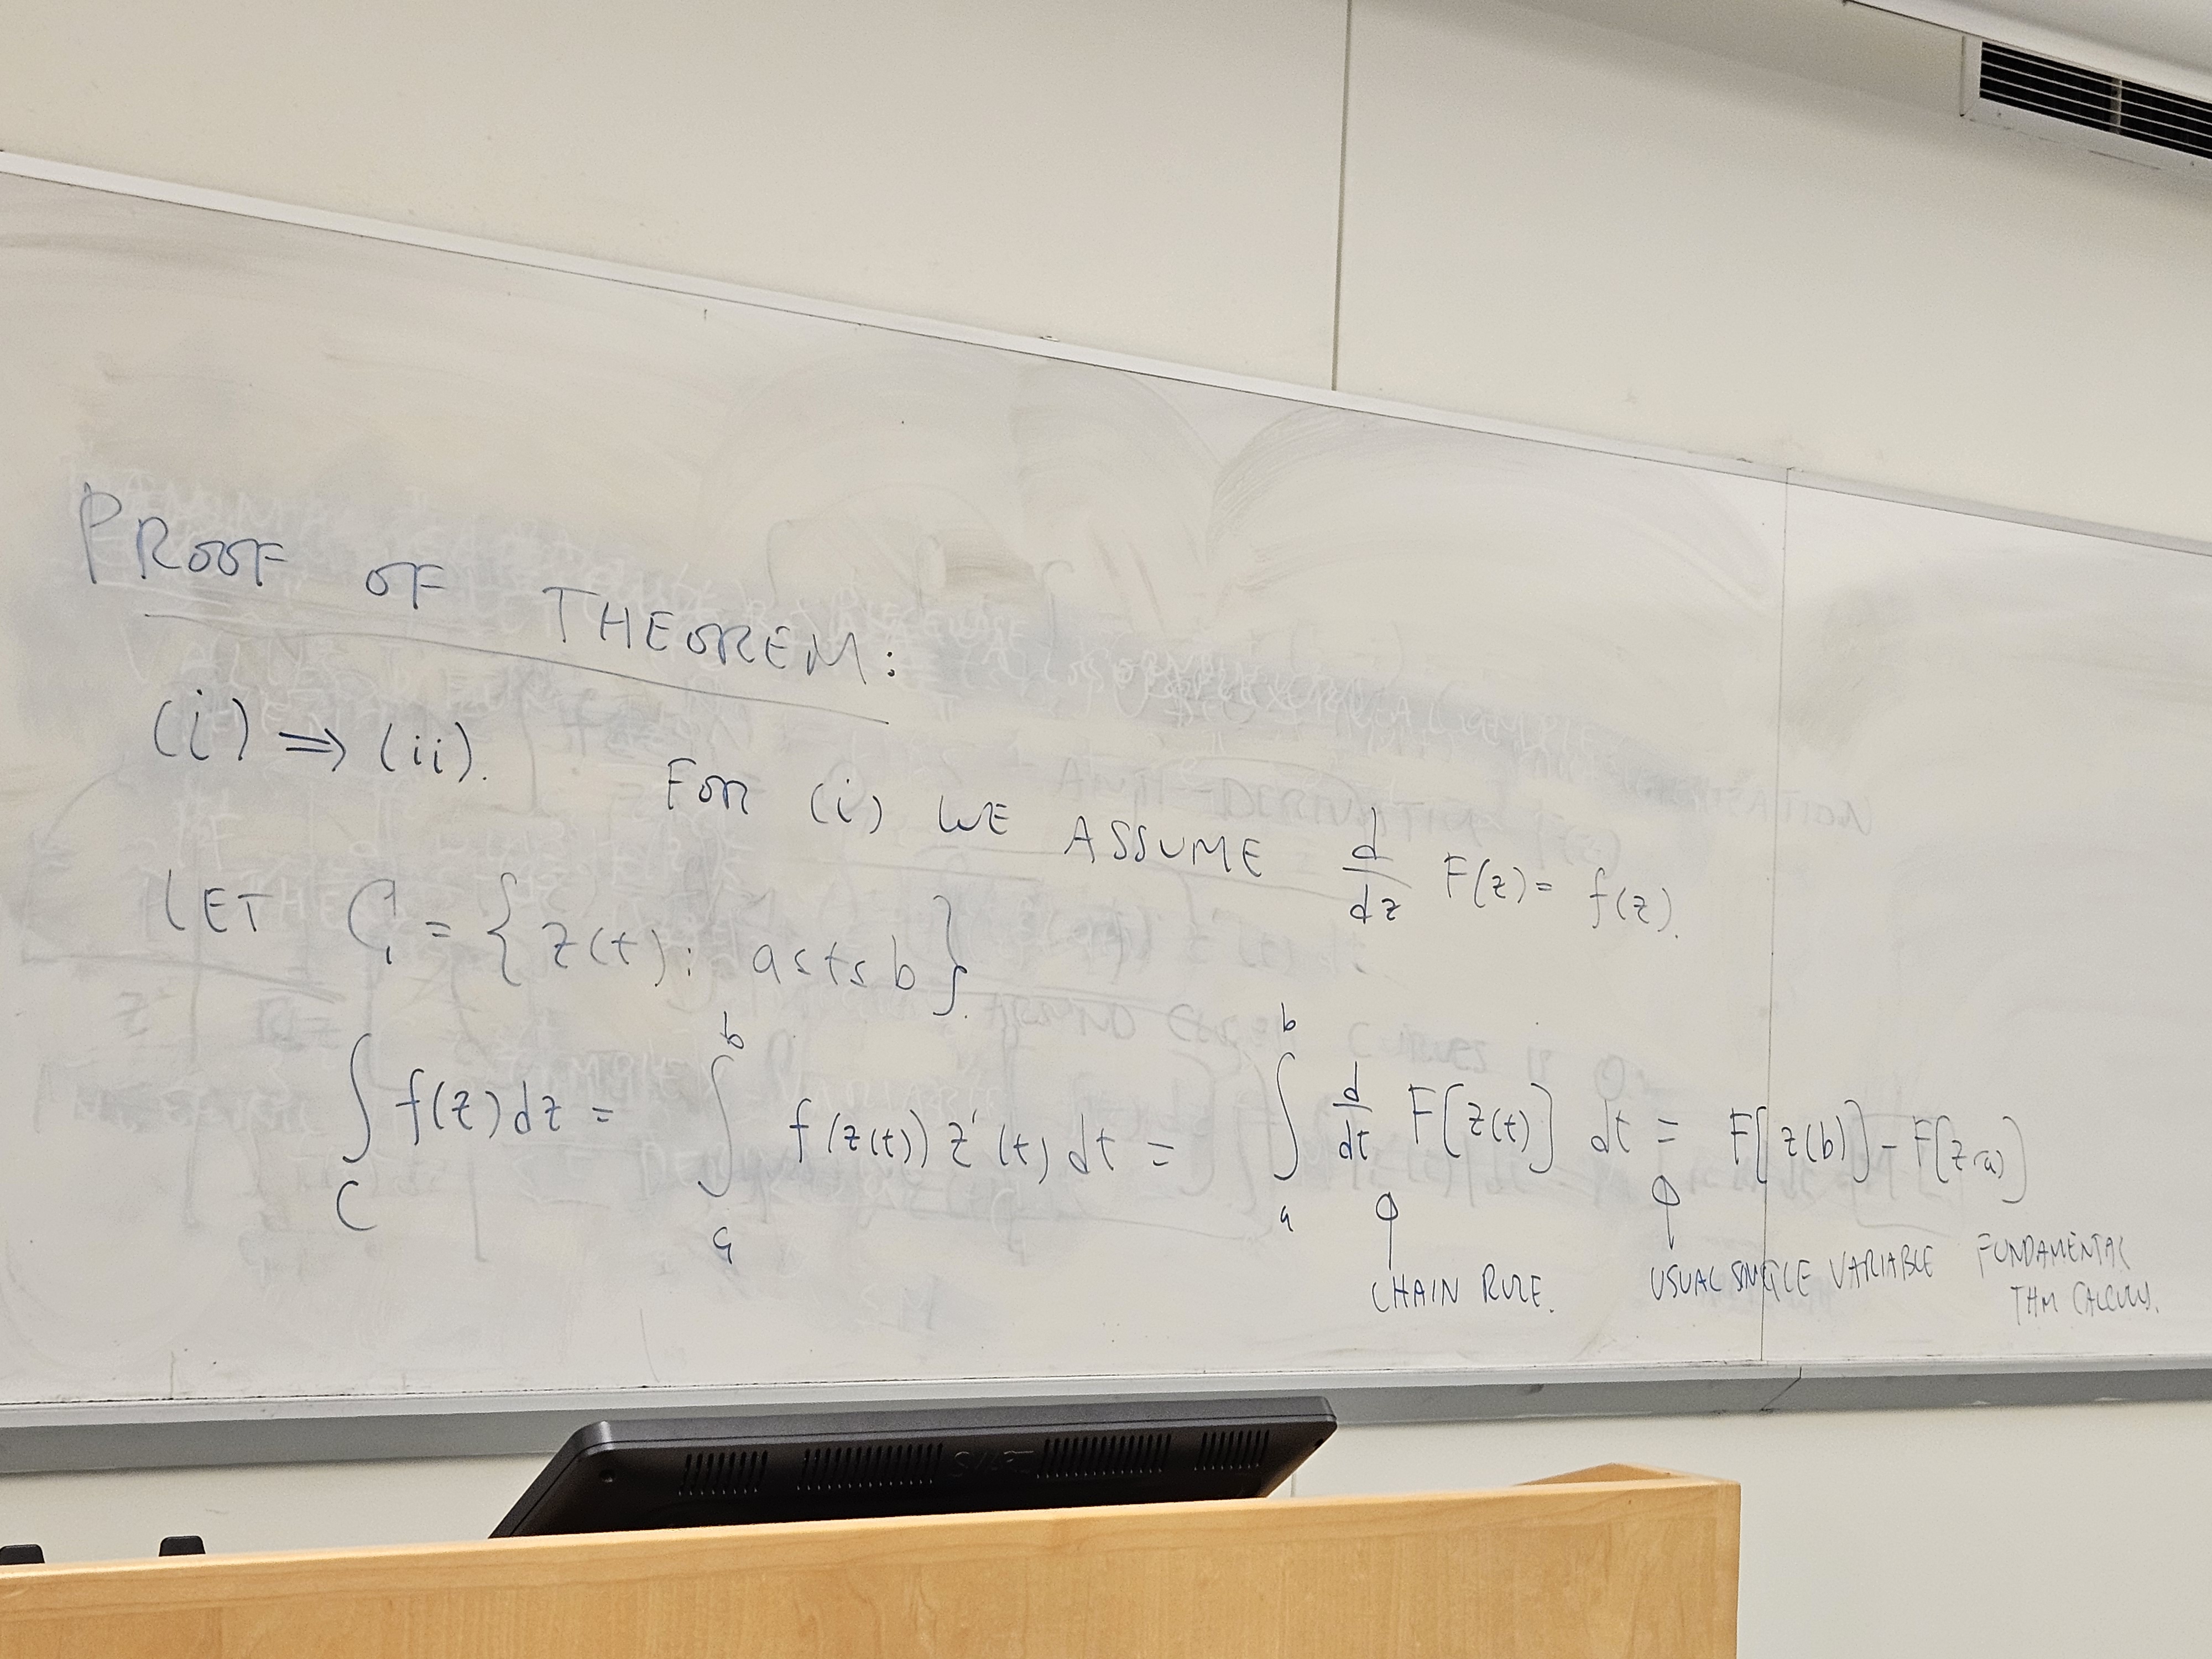 PROOF OF THEOREM:
(i) ⇒ (ii). FOR (i) WE ASSUME d/dz F(z) = f(z).
LET C = { z(t): a ≤ t ≤ b }.
∫_C f(z) dz = ∫_a^b f(z(t)) z'(t) dt = ∫_a^b d/dt F[z(t)] dt = F[z(b)] - F[z(a)]
CHAIN RULE. USUAL SINGLE VARIABLE FUNDAMENTAL
THM CALCULUS.